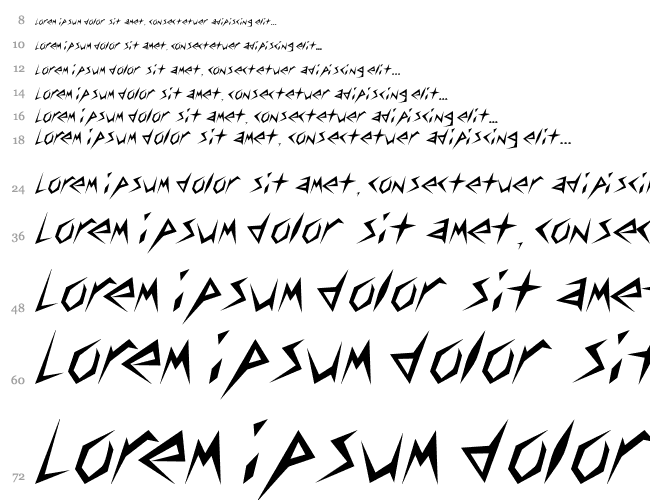 8 Lorem ipsum dolor sit amet, consectetuer adipiscing elit...
10 Lorem ipsum dolor sit amet, consectetuer adipiscing elit...
12 Lorem ipsum dolor sit amet, consectetuer adipiscing elit...
14 Lorem ipsum dolor sit amet, consectetuer adipiscing elit...
16 Lorem ipsum dolor sit amet, consectetuer adipiscing elit...
18 Lorem ipsum dolor sit amet, consectetuer adipiscing elit...
24 Lorem ipsum dolor sit amet, consectetuer adipiscin
36 Lorem ipsum dolor sit amet, consec
48 Lorem ipsum dolor sit ame
60 Lorem ipsum dolor sit
72 Lorem ipsum dolor